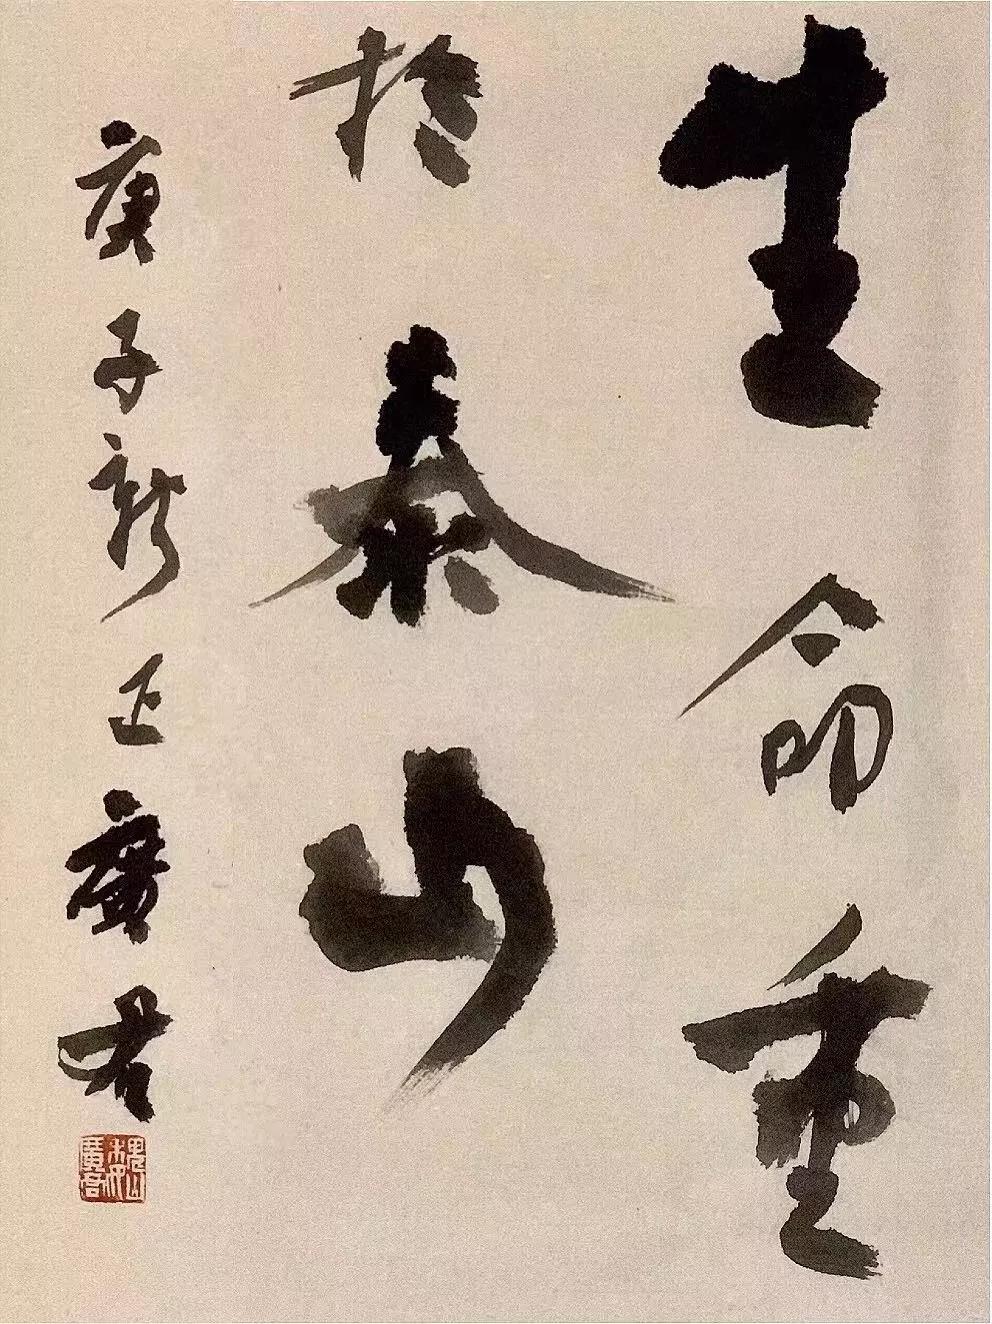 生命重
於泰山
庚子新正廣君